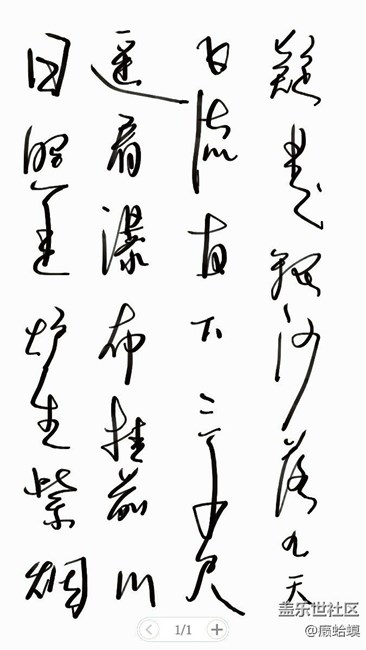 日照香炉生紫烟
遥看瀑布挂前川
飞流直下三千尺
疑是银河落九天
1/1
盖乐世社区
@癞蛤蟆